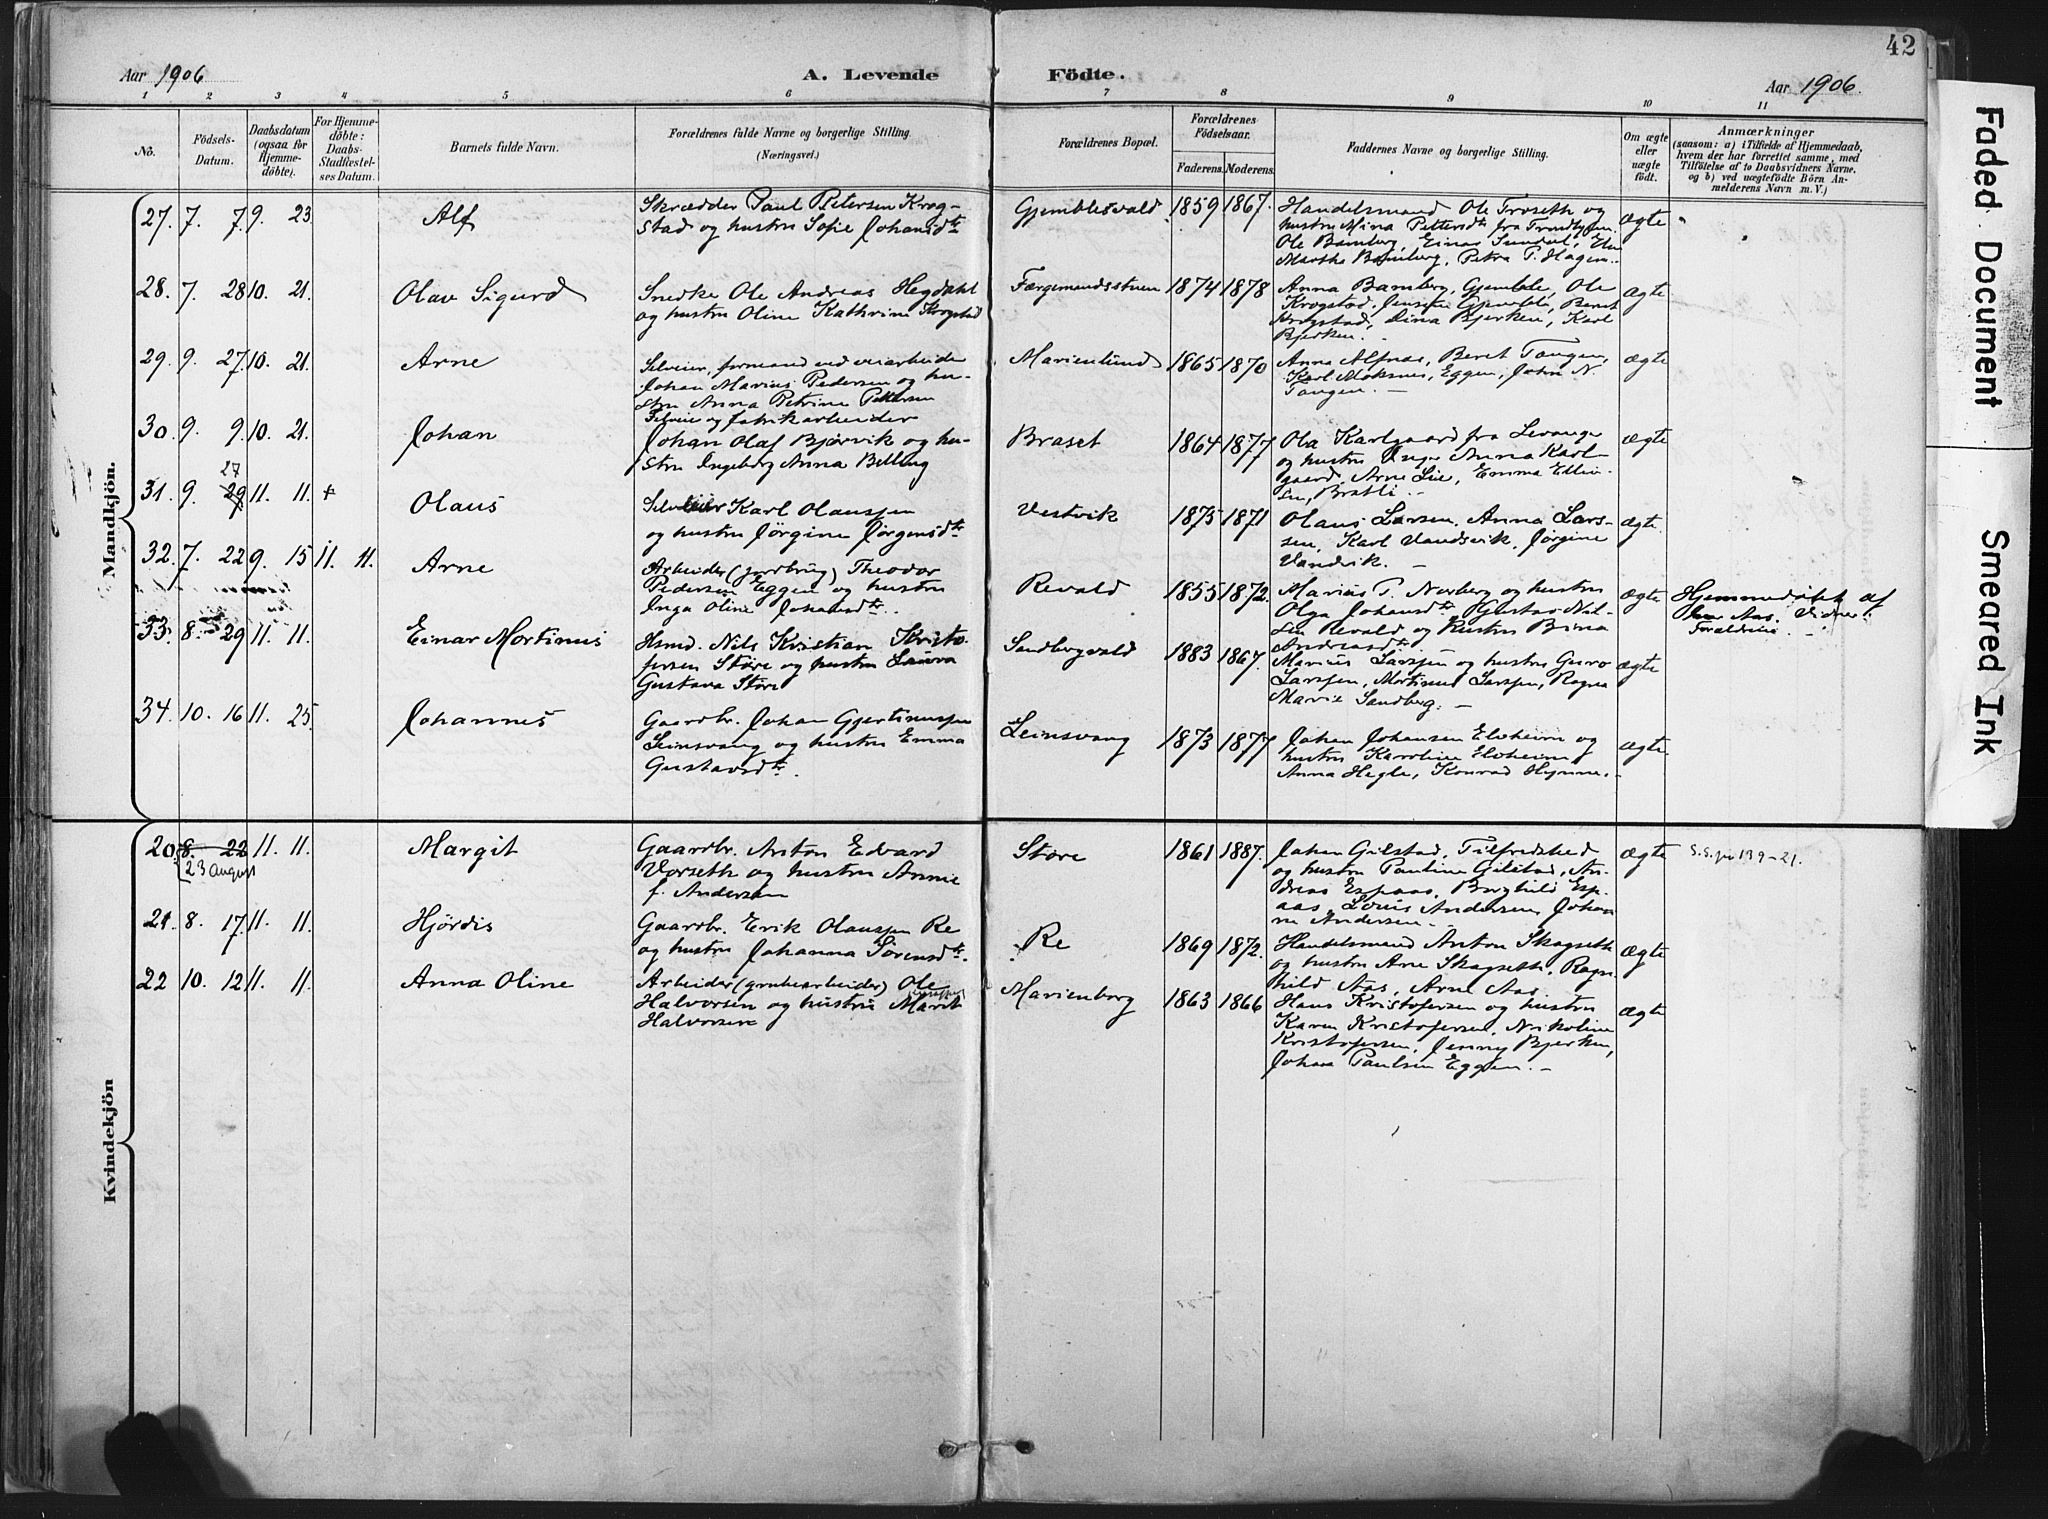 42
Aar 1906
A. Levende Födte.
Aar 1906.
1 2 3 4 5 6 7 8 9 10 11
No.
Födsels-Datum.
Daabsdatum (ogsaa for Hjemme-döbte).
For Hjemme-döbte: Daabs-Stadfæstel-ses Datum.
Barnets fulde Navn.
Forældrenes fulde Navne og borgerlige Stilling.
(Næringsvei.)
Forældrenes Bopæl.
Forældrenes Födselsaar.
Faderens. Moderens.
Faddernes Navne og borgerlige Stilling.
Om ægte eller uægte födt.
Anmærkninger
(saasom: a) i Tilfælde af Hjemmedaab,
hvem der har forrettet samme, med
Tilföielse af to Daabsvidners Navne,
og b) ved uægtefödte Börn An-
melderens Navn m. V.)
Mandkjön.
27. 7. 7. 9. 23. Alf
Skrædder Paul Petersen Krog-
stad og hustru Sofie Johansdtr
Gjemblesvald 1859 1867.
Handelsmand Ole Troseth og
hustru Mina Pettersdtr fra Trondhjem.
Ole Bamberg, Einar Sundal,
Martha Bamberg, Petra P. Hagen.
ægte
28. 7. 28 10. 21. Olav Sigurd
Snedke Ole Andreas Hegdahl
og hustru Oline Kathrine Krogstad
Færgemandsstuen 1874 1878
Anna Bamberg, Gjemble, Ole
Krogstad, Jensine Gjemble, Beret
Krogstad, Dina Bjerken, Karl
Bjerken.
ægte
29. 9. 27. 10. 21. Arne
Selveier, formand ved veiarbeider
Johan Marius Pedersen og hu-
stru Anna Petrine Pettersen
Marienlund 1865 1870
Anna Alfnæs, Beret Tangen,
Karl Moksnes, Eggen, John N.
Tangen. —
ægte
30. 9. 9. 10. 21. Johan
Selveie og fabrikarbeider
Johan Olaf Bjørvik og hu-
stru Ingeborg Anna Belling
Braset 1864 1877
Ola Karlgaard fra Levanger
og hustru Inger Anna Karl-
gaard, Arne Lie, Emma Ellin-
sen, Bratli. —
ægte
31. 9. 27 29 11. 11. + Olaus
Selveier Karl Olaussen
og hustru Jørgine Jørgensdtr
Vestvik 1875 1871
Olaus Larsen, Anna Lars-
sen, Karl Vandsvik, Jørgine
Vandvik. —
ægte
32. 7. 22 9. 15 11. 11. Arne
Arbeider (jordbrug) Theodor
Pedersen Eggen og hustru
Inga Oline Johansdtr.
Revald 1855 1872.
Marius P. Norberg og hustru
Olga Johansdtr, Gustav Nil-
sen Revald og hustru Bina
Andreasdtr.
ægte
Hjemmedøbt af
Aas. Vidner:
Forældrene. —
33. 8. 29 11. 11. Einar Mortinus
Hsmd. Nils Kristian Kristo-
fersen Støre og hustru Laura
Gustava Støre
Sandbergvald 1883 1867.
Marius Larssen og hustru Guro
Larssen, Mortinus Larssen, Ragna
Marie Sandberg. —
ægte
34. 10. 16 11. 25. Johannes
Gaardbr. Johan Gjertinussen
Leinsvang og hustru Emma
Gustavsdtr.
Leinsvang 1873 1877
Johan Johansen Elveheim og
hustru Karoline Elveheim,
Anna Hegle, Konrad Hynne. —
ægte
Kvindekjön
20. 8. 22 11. 11. Margit
23 august
Gaardbr. Anton Edvard
Vorseth og hustru Annie
f. Andersen
Støre 1861 1887.
Johan Gilstad, Tilfredshed
og hustru Pauline Gilstad, An-
dreas Espaas, Borghild Esp-
aas, Louis Andersen, Johan-
ne Andersen. —
ægte
S.S. jr 139-21.
21. 8. 17. 11. 11. Hjørdis
Gaardbr. Erik Olaussen Re
og hustru Johanna Sørensdtr.
Re 1869 1872.
Handelsmand Anton Skogseth
og hustru Arne Skogseth, Ragn-
hild Aas, Arne Aas
ægte
22 10. 12 11. 11. Anna Oline
Arbeider (grubearbeider) Ole
Halvorsen og hustru Marit
Halvorsen
Marienborg 1863 1866
Hans Kristofersen og hustru
Karen Kristofersen, Nikoline
Kristofersen, Jenny Bjerken,
Johan Paulsen Eggen. —
ægte
Faded Document
Smeared Ink